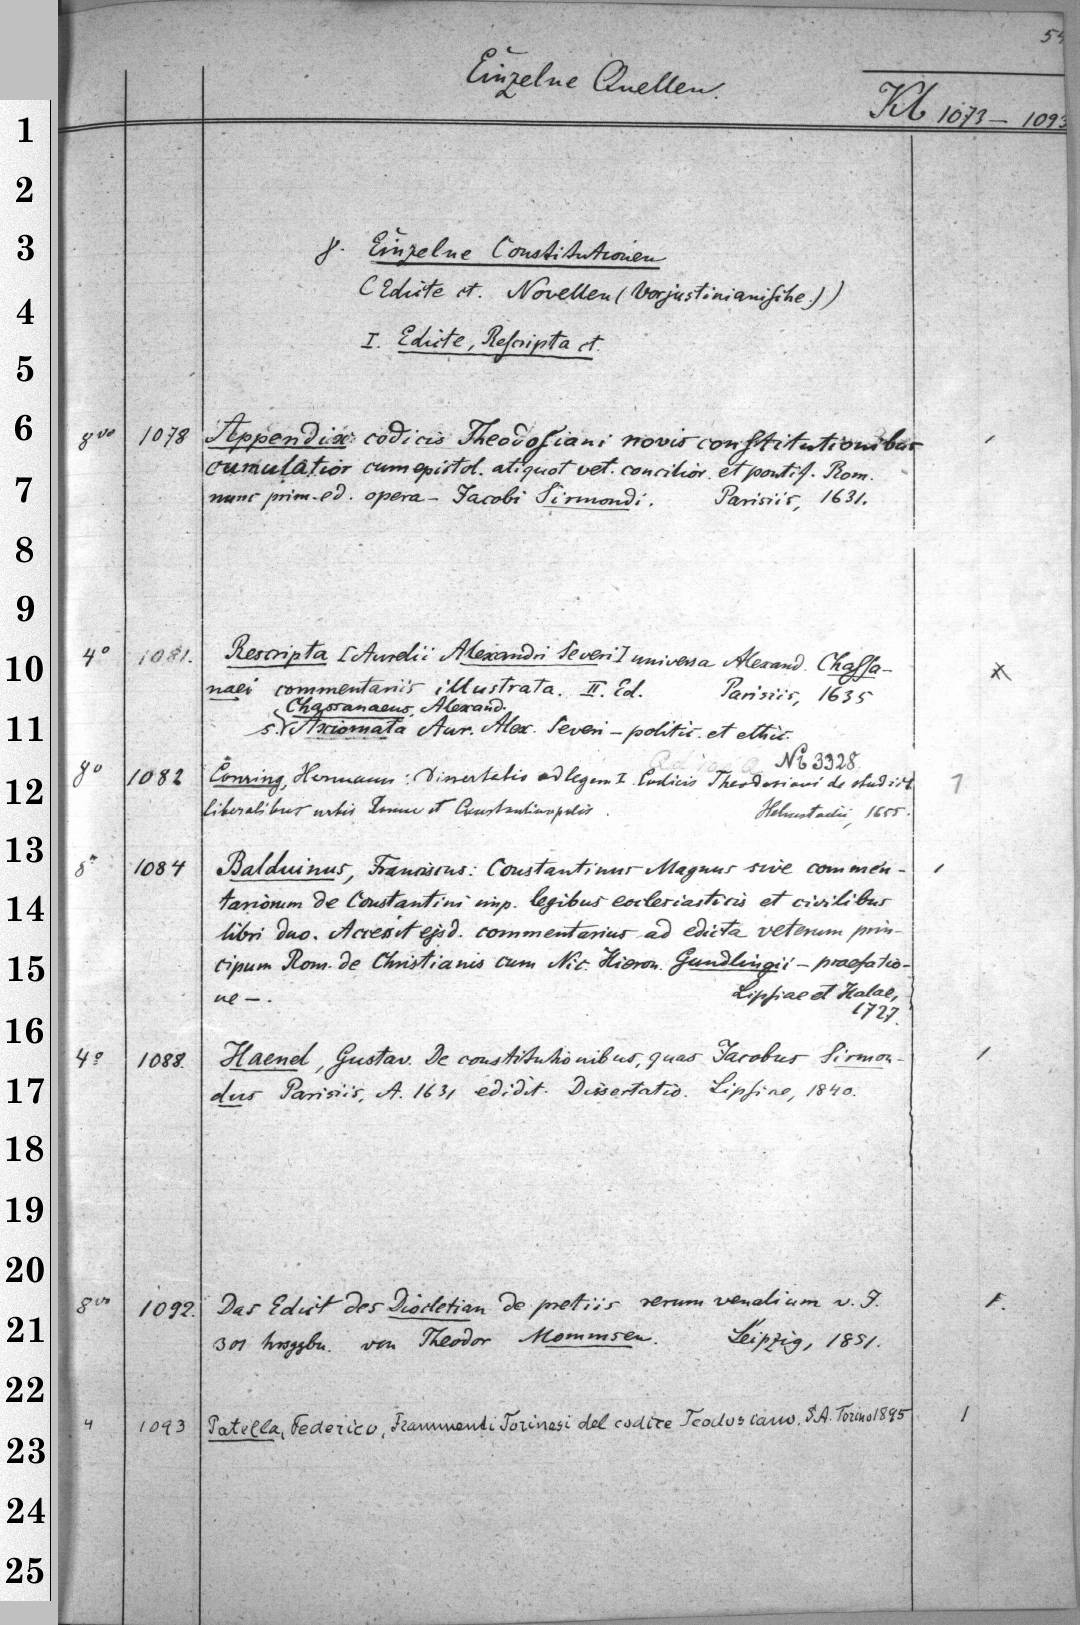 Einzelne Quellen.
Kb 1073 — 1093
1
2
3
γ. Einzelne Constitutionen
(Edicte et. Novellen (Vorjustinianische.))
4
I. Edicte, Rescripta et.
5
6
8vo 1078 Appendix codicis Theodosiani novis constitutionibus
cumulatior cum epistol. aliquot vet. concilior. et pontif. Rom.
7
nunc prim. ed. opera – Jacobi Sirmondi. Parisiis, 1631.
8
9
10
4° 1081. Rescripta [Aurelii Alexandri Severi] universa Alexand. Chassa-
naei commentariis illustrata. II. Ed. Parisiis, 1635
Chassanaeus, Alexand.
11
s. Axiomata Aur. Alex. Severi – politic. et ethic.
Ni 3328.
12
8° 1082 Conring, Hermann: Dissertatio ad legem I. Codicis Theodosiani de studiis
liberalibus urbis Romae et Constantinopolis. Helmstadii, 1655.
13
8° 1084 Balduinus, Franciscus: Constantinus Magnus sive commen-
14
tariorum de Constantini imp. legibus ecclesiasticis et civilibus
libri duo. Accesit ejsd. commentarius ad edicta veterum prin-
15
cipum Rom. de Christianis cum Nic. Hieron. Gundlingii – praefatio-
ne –. Lipsiae et Halae,
1727.
16
4° 1088. Haenel, Gustav. De constitutionibus, quas Jacobus Sirmon-
17
dus Parisiis, A. 1631 edidit. Dissertatio. Lipsiae, 1840.
18
19
20
8vo 1092. Das Edict des Diocletian de pretiis rerum venalium v. J.
21
301 hrsggbn. von Theodor Mommsen. Leipzig, 1851.
22
4 1093 Patella, Federico, Frammenti Torinesi del codice Teodosiano. S.A. Torino 1895
23
24
25